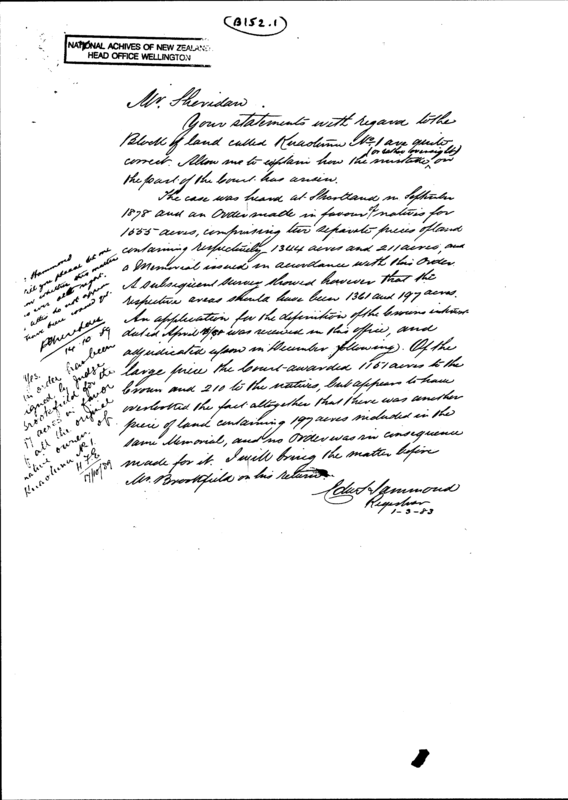 B152.1
NATIONAL ACHIVES OF NEW ZEALAND
HEAD OFFICE WELLINGTON
Mr. Sheridan.
Your statements with regard to the
Block of land called Kuaotunu No. 1 are quite
correct. Allow me to explain how the mistake (or rather oversight) on
the part of the Court has arisen.
The case was heard at Shortland in September
1878 and an Order made in favour of natives for
1555 acres, comprising two separate pieces of land
containing respectively 1344 acres and 211 acres, and
a Memorial issued in accordance with this Order.
A subsequent survey showed however that the
respective areas should have been 1361 and 197 acres.
An application for the definition of the Crowns interest
dated April was received in this office, and
adjudicated upon in December following. Of the
large piece the Court awarded 1151 acres to the
Crown and 210 to the natives, but appears to have
overlooked the fact altogether that there was another
piece of land containing 197 acres included in the
same Memorial, and no Order was in consequence
made for it. I will bring the matter before
Mr. Brookfield on his return.
Edw Hammond
Registrar
1-3-83
Hammond
Will you please let me
know whether this matter
was ever set right.
titles do not appear
to have been issued yet.
14.10.89
Yes.
an order has been
signed by Judge
Brookfield for the
acres in favor
of all the original
native owners of
Kuaotunu No 1.
H.F.E.
17/10/89